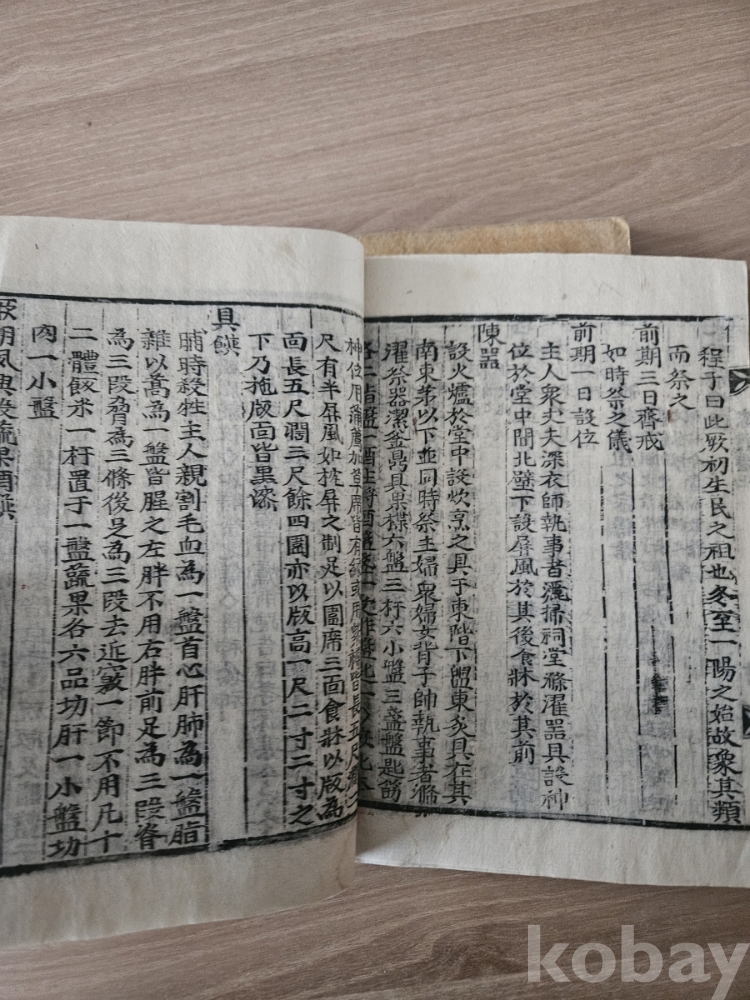 程子曰此厥初生民之祖也冬至一陽之始故象其類
而祭之
前期三日齊戒
如時祭之儀
前期一日設位
主人衆丈夫深衣師執事者灑掃祠堂滌濯器具設神
位於堂中間北壁下設屏風於其後食牀於其前
陳器
設火爐於堂中設炊烹之具于東階下盥東炙具在其
南束茅以下並同時祭主婦衆婦女背子帥執事者滌
濯祭器潔釜鼎具果楪六盤三杆六小盤三盞盤匙筯
尺有半屏風如枕屏之制足以圍席三面食牀以版為
面長五尺濶三尺餘四圍亦以版高一尺二寸二寸之
下乃拖版面皆黒漆
具饌
晡時殺牲主人親割毛血為一盤首心肝肺為一盤脂
雜以蒿為一盤皆腥之左胖不用右胖前足為三段脊
為三段脅為三條後足為三段去近竅一節不用凡十
二體飯米一杆置于一盤蔬果各六品切肝一小盤切
肉一小盤
厥明夙興設蔬果酒饌
kobay